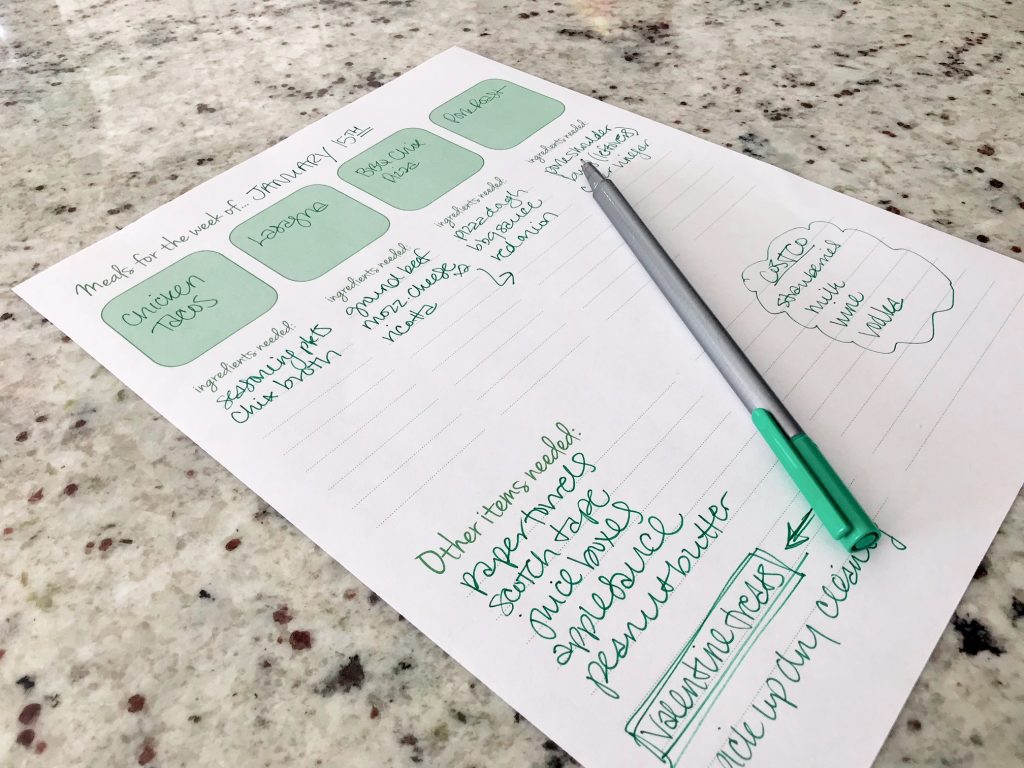 Meals for the week of... JANUARY 15TH
Chicken
Tacos
ingredients needed:
seasoning pkts
chix broth
Lasagna
ingredients needed:
ground beef
mozz. cheese x2
ricotta
BBQ Chix
Pizza
ingredients needed:
pizza dough
bbq sauce
red onion
Pork Roast
ingredients needed:
pork shoulder
(cloves)
vinegar
COSTCO
milk
wine
Other items needed:
paper towels
scotch tape
juice boxes
applesauce
peanut butter
Valentine Treats
up dry cleaning